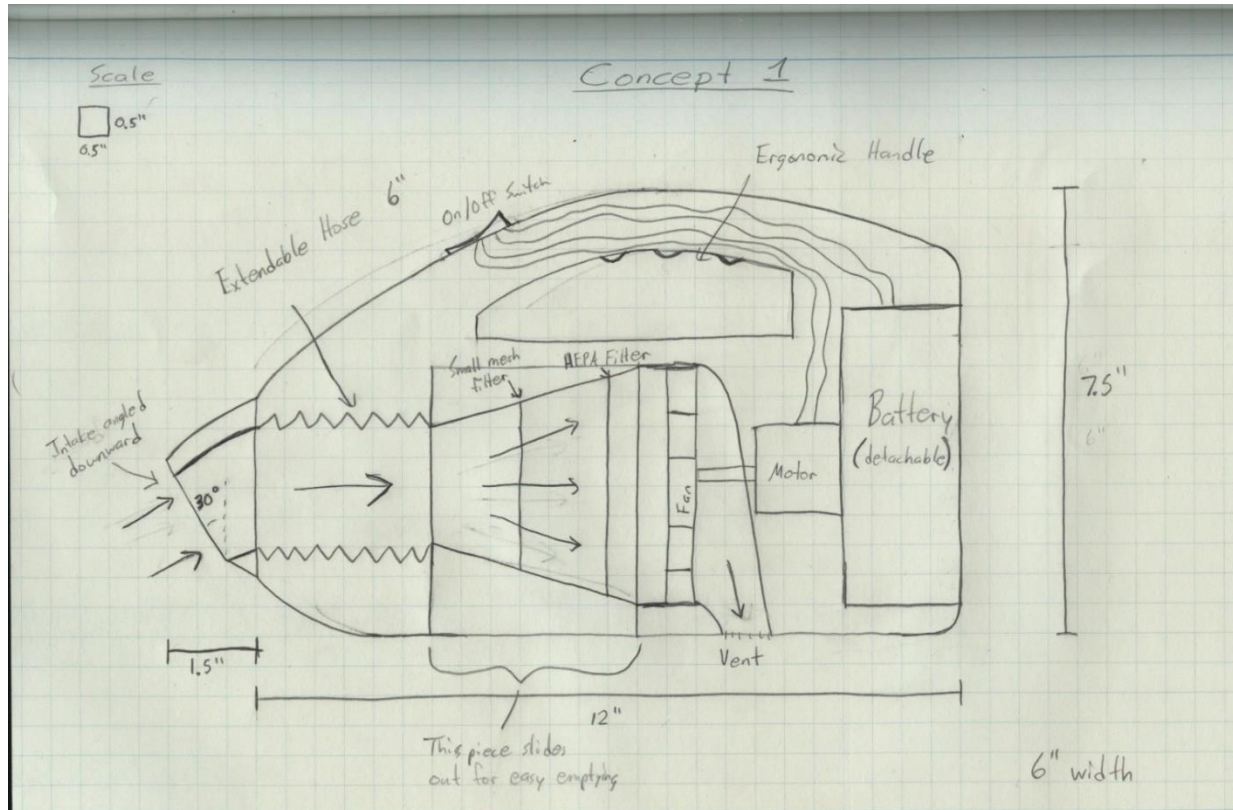 Scale
0.5"
0.5"
Concept 1
Ergonomic Handle
Extendable Hose 6"
On/Off Switch
Small mesh
filter
HEPA Filter
Intake angled
downward
30°
Fan
Motor
Battery
(detachable)
7.5"
6"
Vent
1.5"
12"
This piece slides
out for easy emptying
6" width